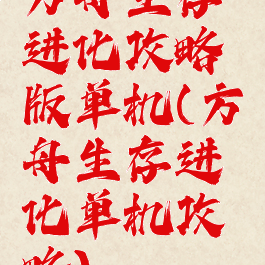 方舟生存
进化攻略
版单机(方
舟生存进
化单机攻
略)